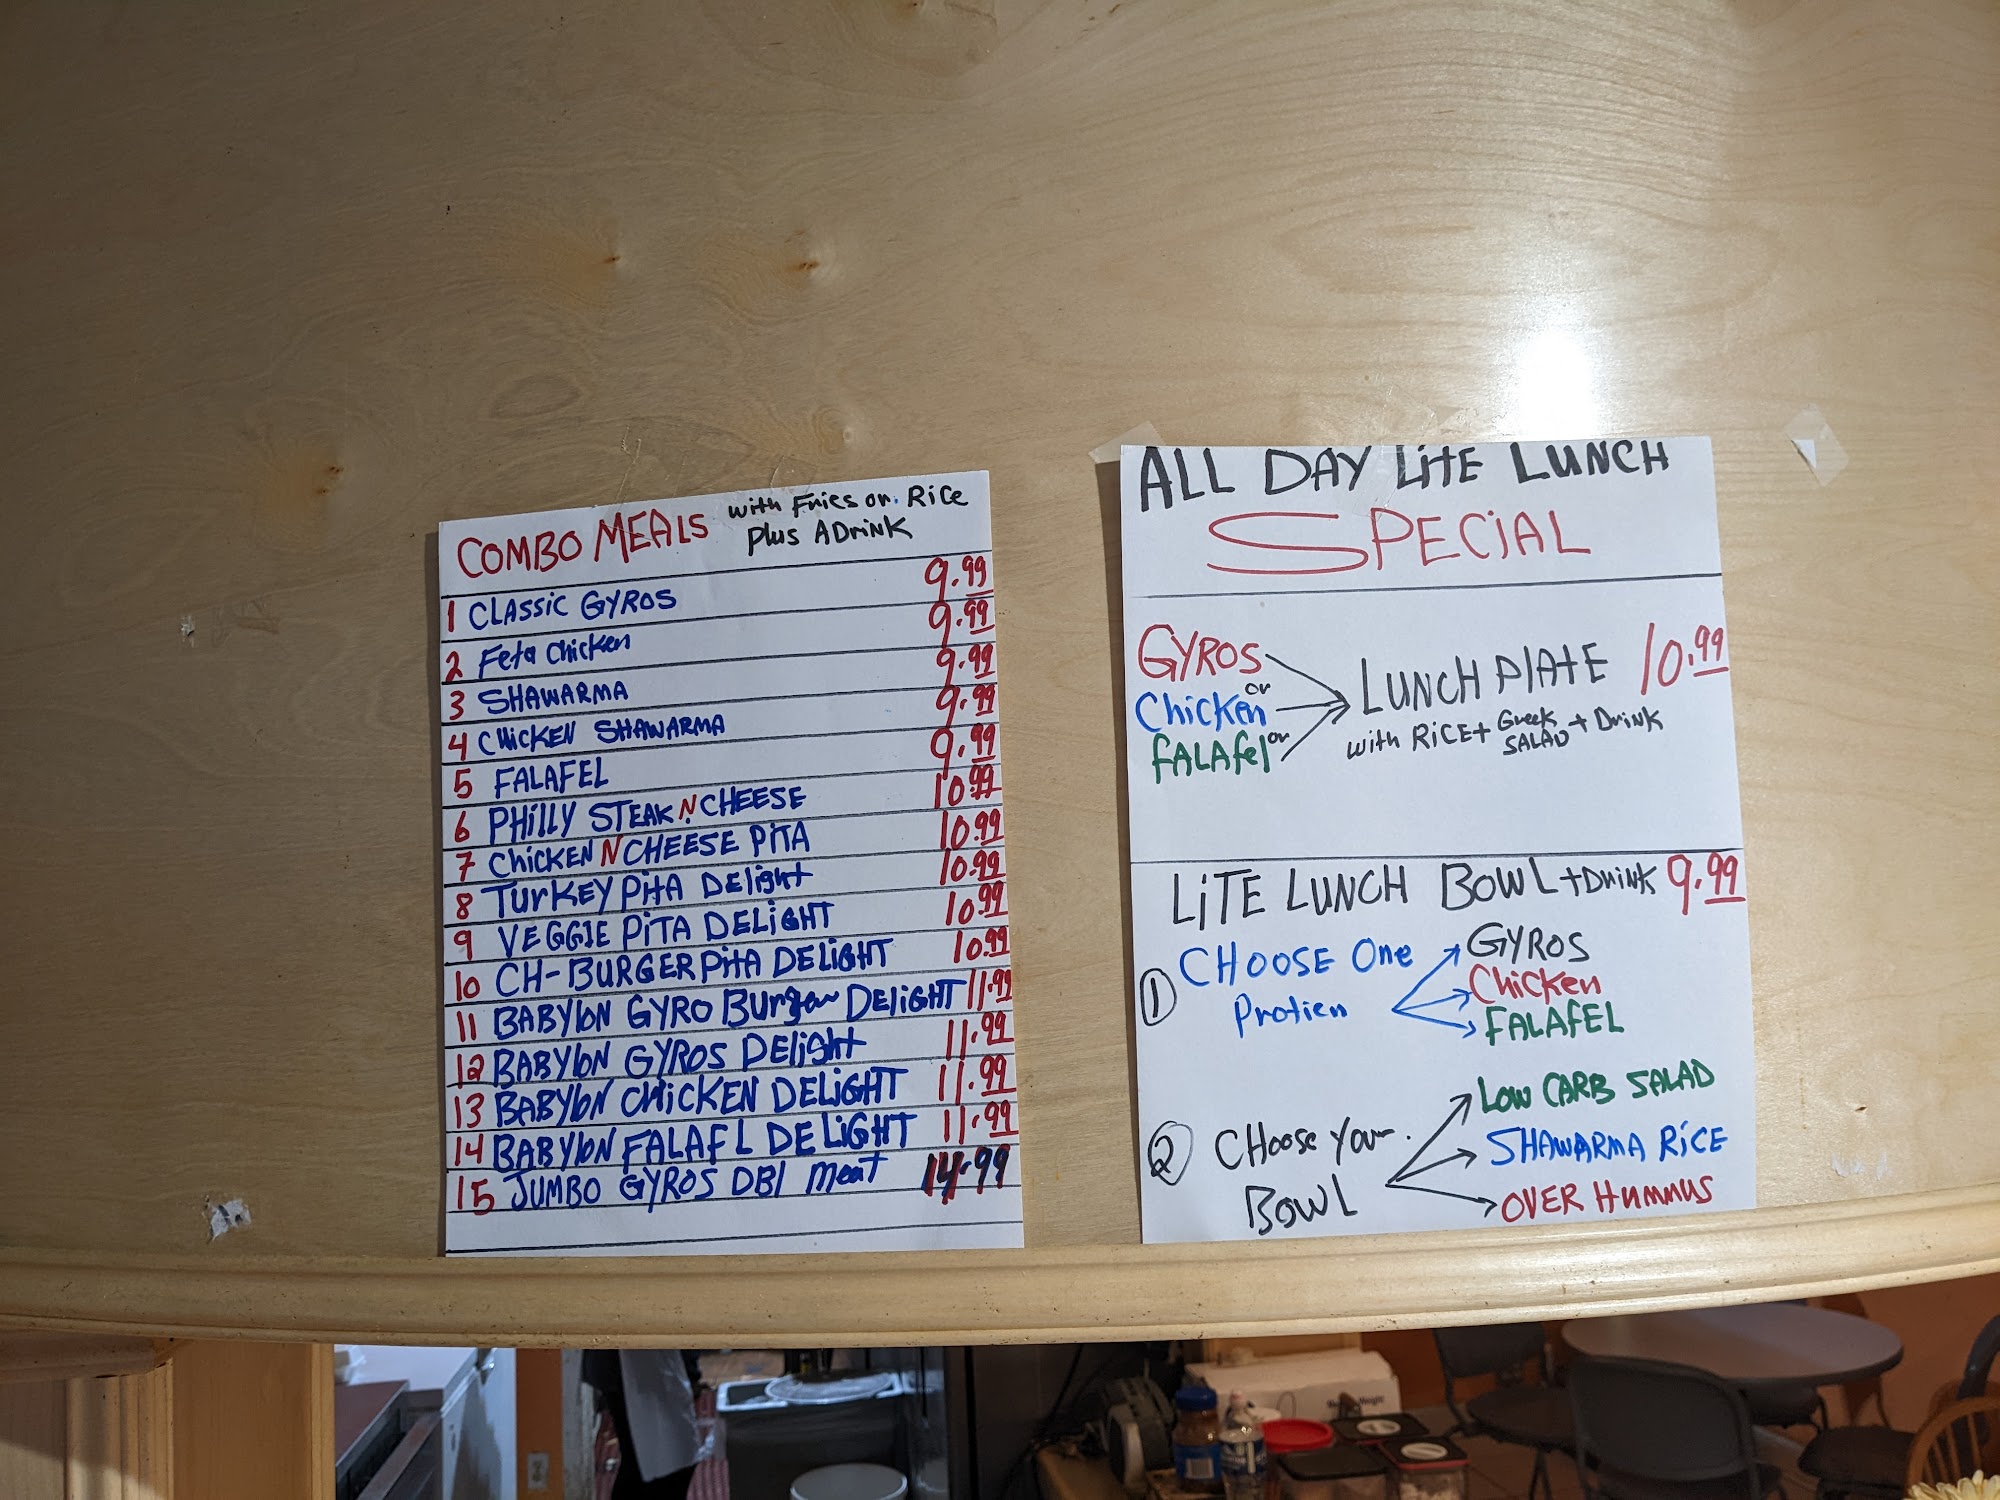 COMBO MEALS with Fries or Rice
plus A Drink
1 CLASSIC GYROS 9.99
2 Feta Chicken 9.99
3 SHAWARMA 9.99
4 CHICKEN SHAWARMA 9.99
5 FALAFEL 9.99
6 PHILLY STEAK N CHEESE 10.99
7 CHICKEN N CHEESE PITA 10.99
8 TURKEY PITA DElight 10.99
9 VEGGIE PITA DELIGHT 10.99
10 CH-BURGER PITA DELIGHT 10.99
11 BABYlON GYRO Burger DELIGHT 11.99
12 BABYlON GYROS DElight 11.99
13 BABYlON CHICKEN DELIGHT 11.99
14 BABYlON FALAFL DELIGHT 11.99
15 JUMBO GYROS DBl meat 14.99
ALL DAY LITE LUNCH
SPECIAL
GYROS
or
Chicken
or
FALAfel
LUNCH PlATE 10.99
with RICE + Greek SALAD + Drink
LITE LUNCH BOWL + Drink 9.99
1 CHOOSE One
Protien
GYROS
Chicken
FALAFEL
2 CHoose Your
BOWL
LOW CARB SALAD
SHAWARMA RICE
OVER HUMMUS